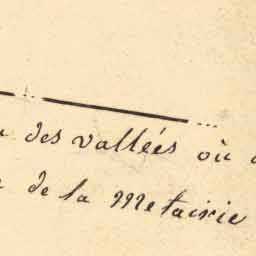 des vallées où
de la Metairie